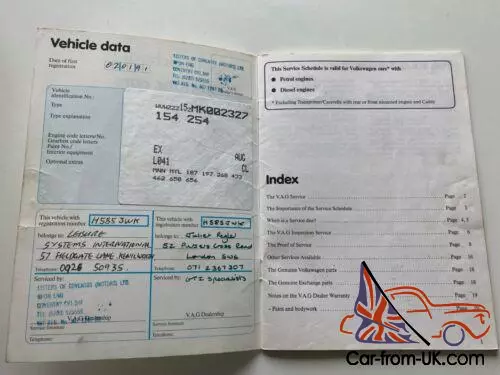 Vehicle data
Date of first
registration
02 01 91
SISTERS OF COVENTRY (MOTORS) LTD
COVENTRY CV1 2HF
Vehicle
identification No.:
WVWZZZ 15ZMK002327
Type
154 254
Type explanation
Engine code letters/No.
Gearbox code letters
Paint No./
Interior equipment
EX AUG
L041 CL
Optional extras
MNN MYL 187 197 268 433
462 650 656
This vehicle with
registration number
H585JWK
belongs to: LEISURE
SYSTEMS INTERNATIONAL
57 FIELDGATE LANE KENILWORTH
Telephone: 0926 50935.
Serviced by:
COVENTRY CV1 2HF
V.A.G Dealership
Service Assistant
Telephone:
This vehicle with
registration number
H585JWK
belongs to:
London SW6
Telephone: 071 2367307
Serviced by:
GTI Specialists
V.A.G Dealership
Service Assistant
Telephone:
This Service Schedule is valid for Volkswagen cars* with
● Petrol engines
● Diesel engines
* Excluding Transporter/Caravelle with rear or front mounted engine and Caddy
Index
The V.A.G Service Page 2
The Importance of the Service Schedule Page 3
When is a Service due? Page 4, 5
The V.A.G Inspection Service Page 6
The Proof of Service Page 8
Other Services Available Page 16
The Genuine Volkswagen parts Page 18
The Genuine Exchange parts Page 18
Notes on the V.A.G Dealer Warranty Page 19
– Paint and bodywork
Car-from-UK.com